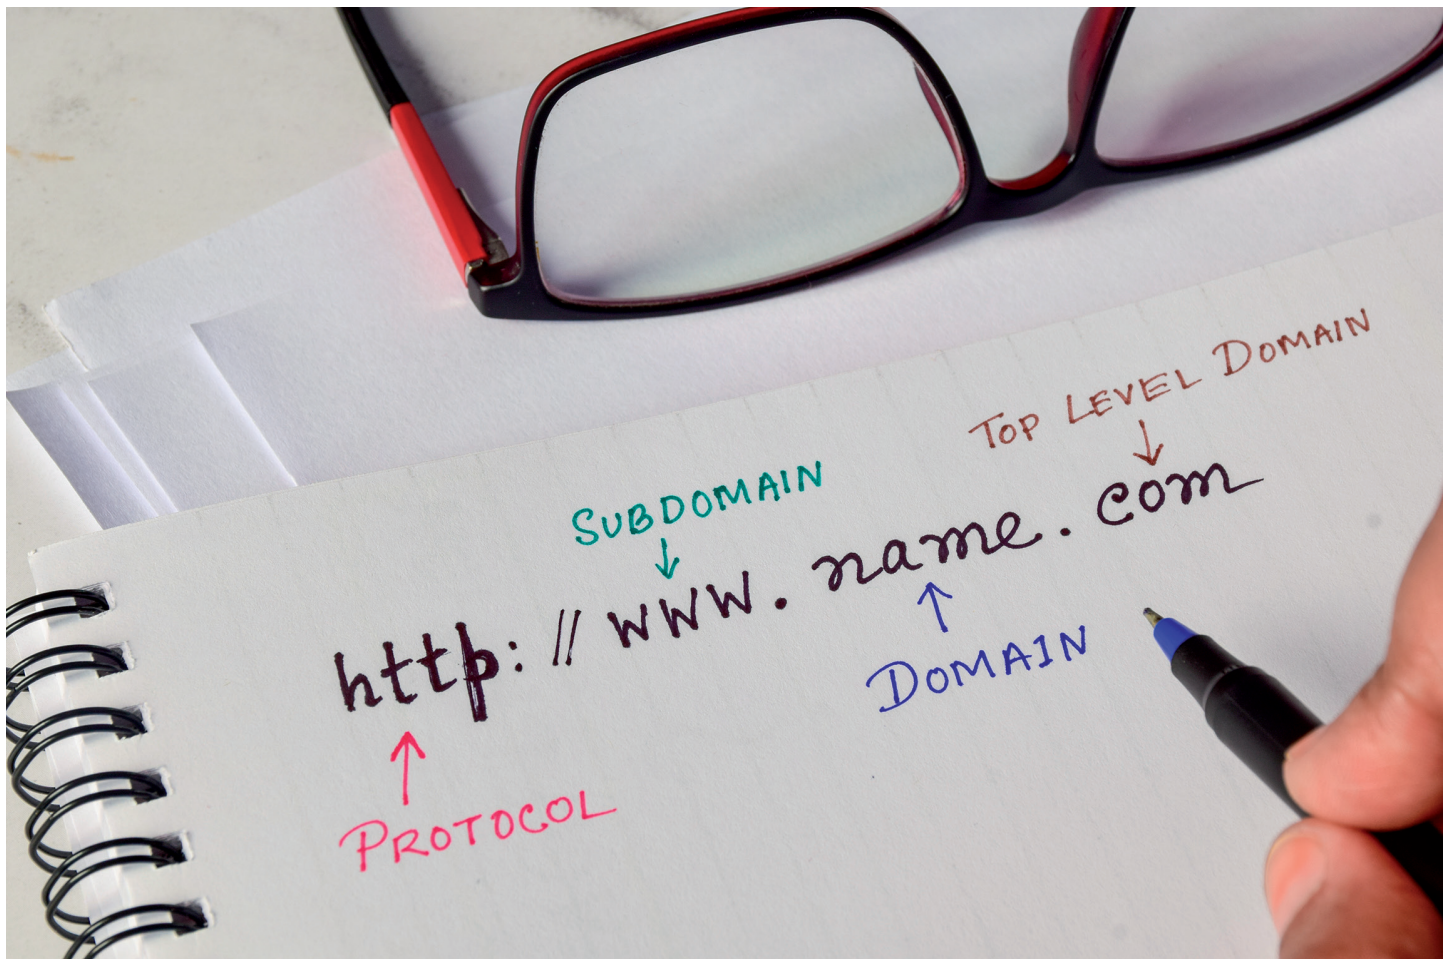 TOP LEVEL DOMAIN
SUBDOMAIN
http://www.name.com
DOMAIN
PROTOCOL